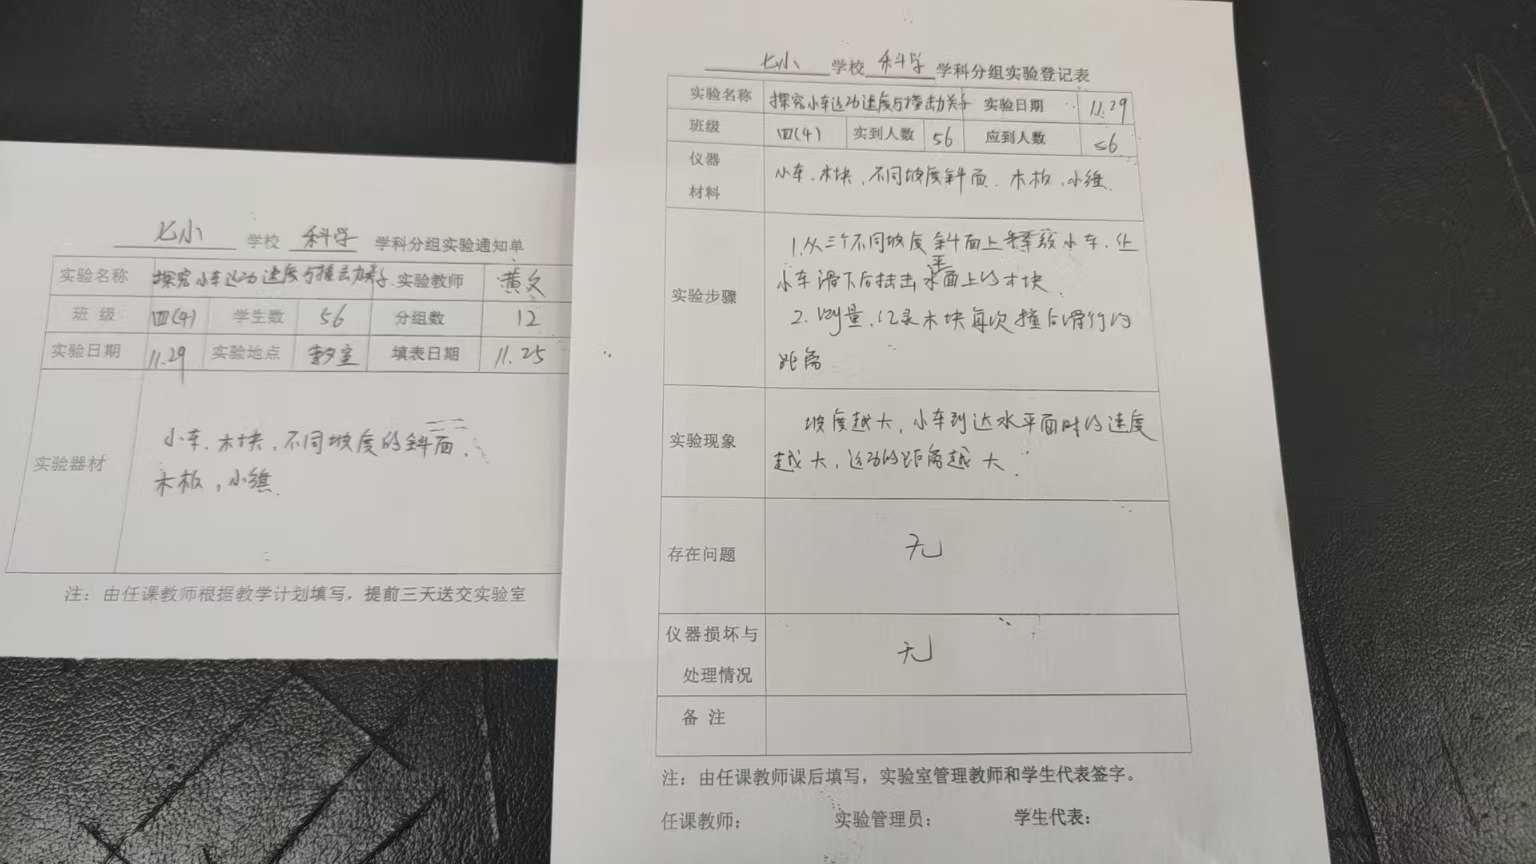 七小 学校 科学 学科分组实验通知单
实验名称 探究小车运动速度与撞击力关系 实验教师 黄文
班 级 四(4) 学生数 56 分组数 12
实验日期 11.29 实验地点 室 填表日期 11.25
实验器材
小车、木块、不同坡度的斜面、
木板,小绳
注:由任课教师根据教学计划填写,提前三天送交实验室
七小 学校 科学 学科分组实验登记表
实验名称 探究小车运动速度与撞击力关系 实验日期 11.29
班级 四(4) 实到人数 56 应到人数 56
仪器
材料
小车、木块、不同坡度斜面、木板、小绳
实验步骤
1.从三个不同坡度斜面上释放小车,让
小车滑下后撞击水平面上的木块.
2.测量、记录木块每次撞后滑行的
距离
实验现象
坡度越大,小车到达水平面时的速度
越大,运动的距离越大.
存在问题 无
仪器损坏与
处理情况
无
备 注
注:由任课教师课后填写,实验室管理教师和学生代表签字。
任课教师: 实验管理员: 学生代表: